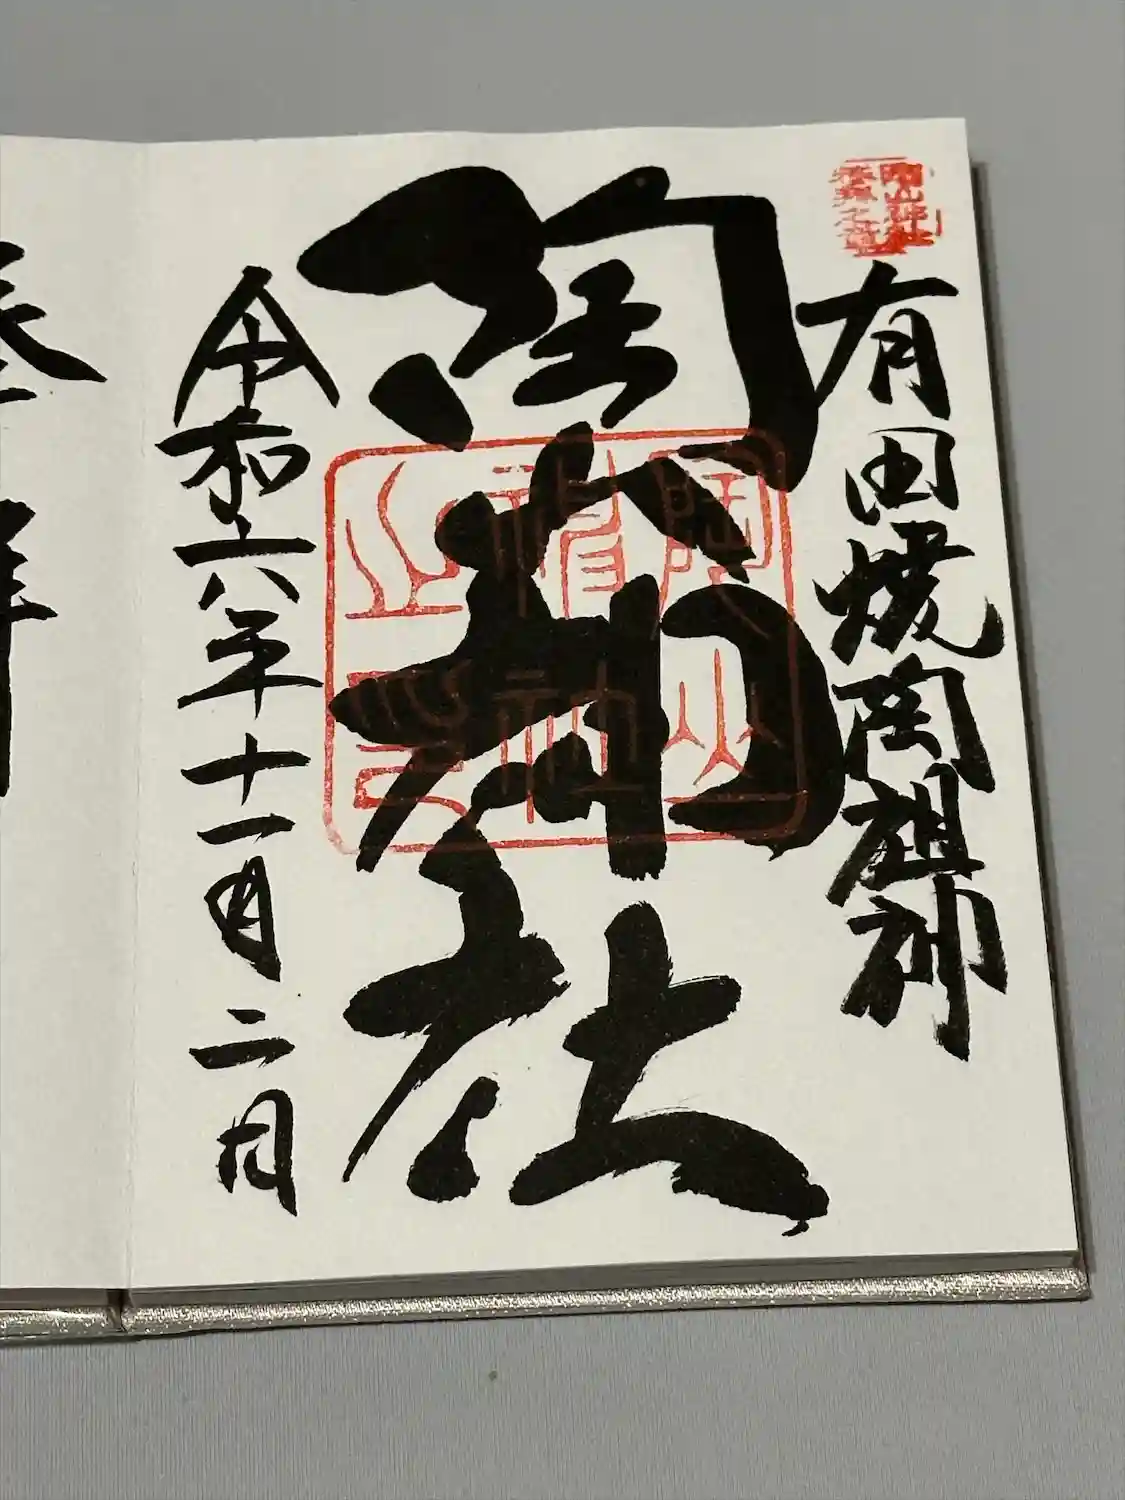 有田焼陶祖神
陶山神社
陶山
神社
之印
令和六年十一月二日